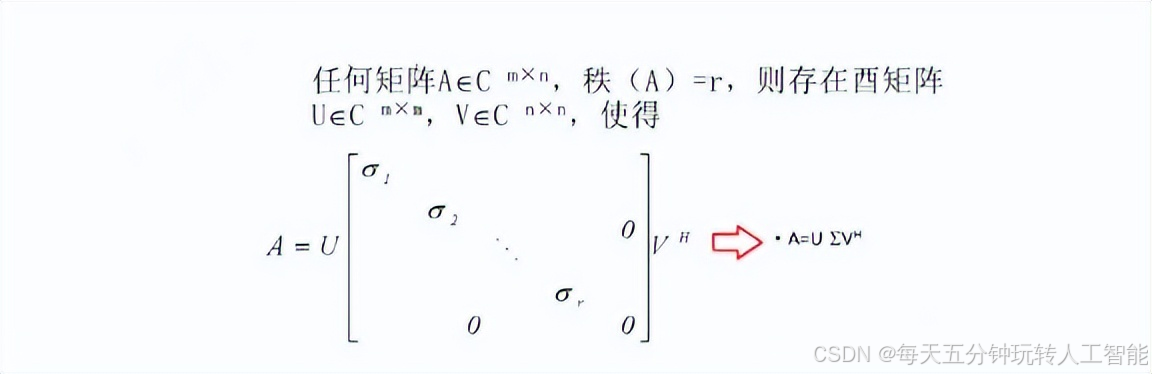 任何矩阵A∈C m×n，秩（A）=r，则存在酉矩阵
U∈C m×m，V∈C n×n，使得
σ1
σ2
0
A = U ⋱ V H • A=U ΣVH
σr
0 0
CSDN @每天五分钟玩转人工智能